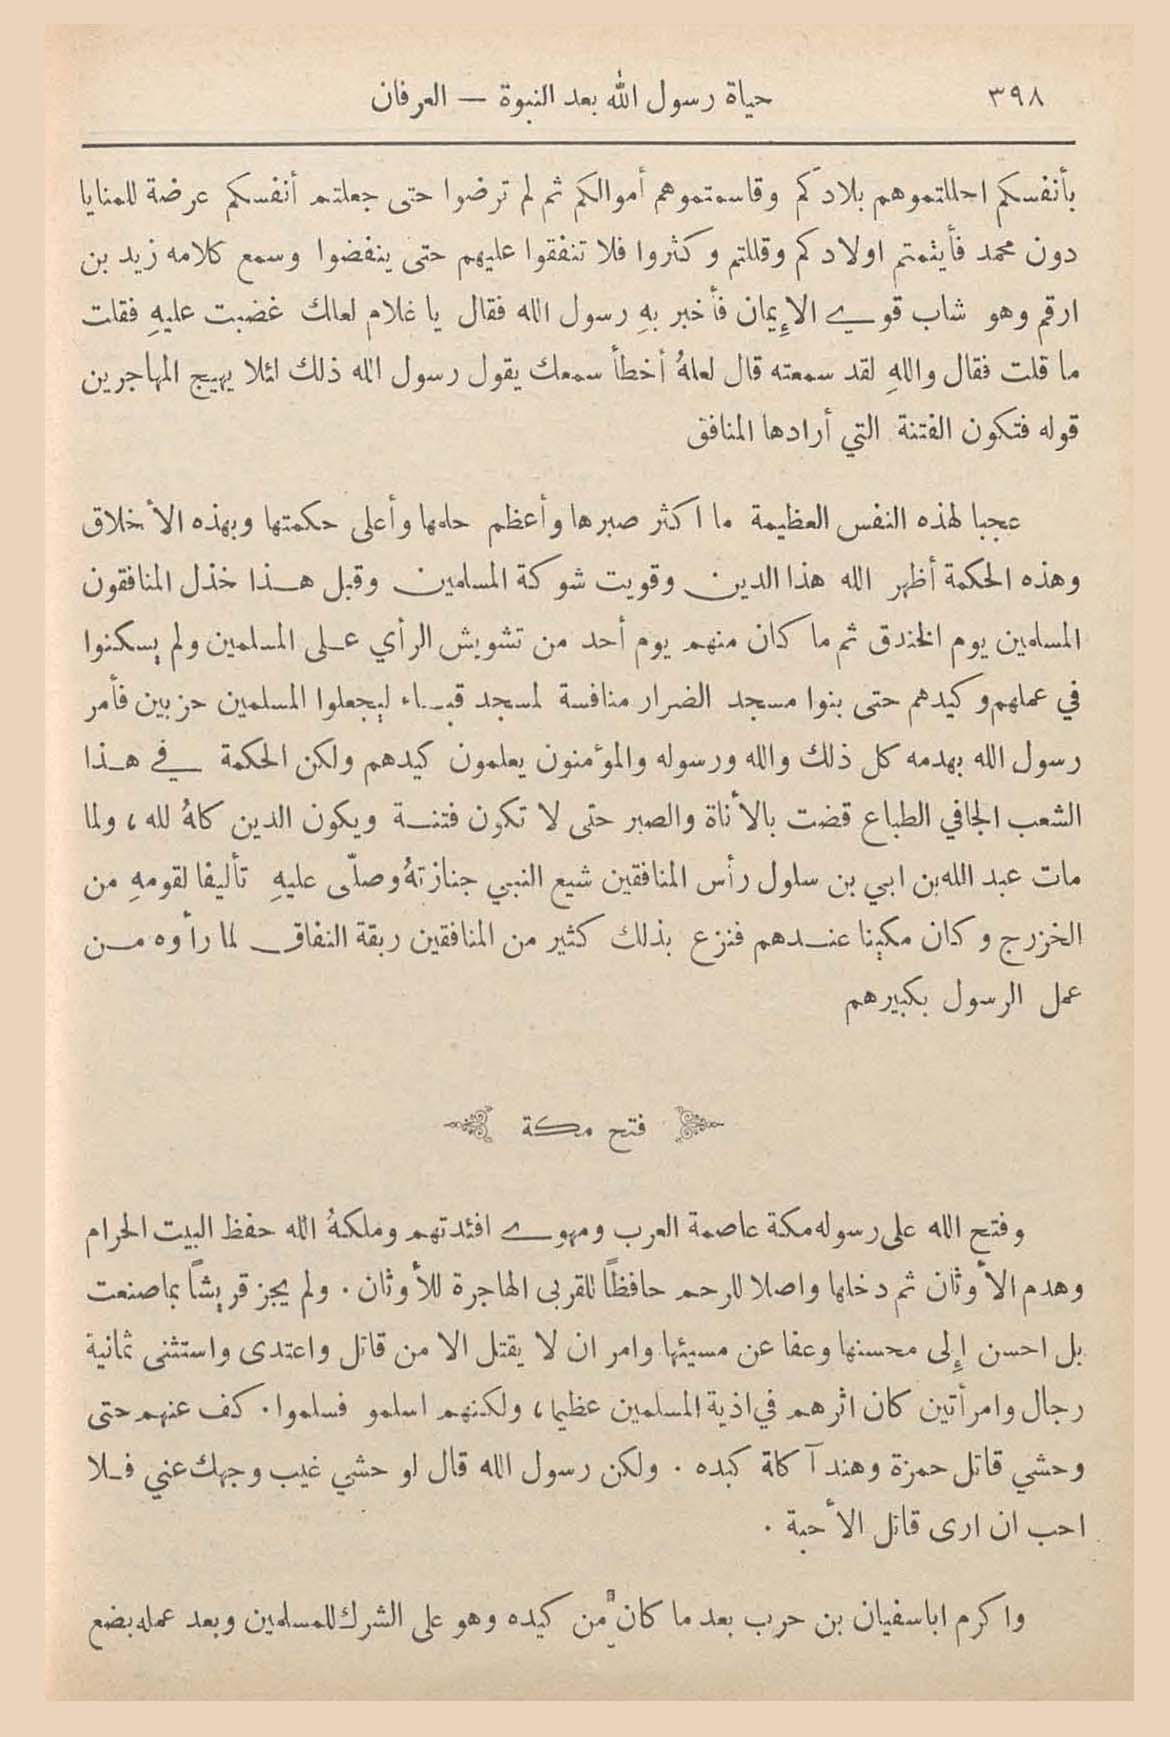 ٣٩٨
حياة رسول الله بعد النبوة — العرفان
بأنفسكم احللتموهم بلادكم وقاسمتموهم أموالكم ثم لم ترضوا حتى جعلتم أنفسكم عرضة للمنايا
دون محمد فأيتمتم اولادكم وقللتم وكثروا فلا تنفقوا عليهم حتى ينفضوا وسمع كلامه زيد بن
ارقم وهو شاب قوي الإيمان فأخبر بهِ رسول الله فقال يا غلام لعلك غضبت عليهِ فقلت
ما قلت فقال واللهِ لقد سمعته قال لعلهُ أخطأ سمعك يقول رسول الله ذلك لئلا يهيج المهاجرين
قوله فتكون الفتنة التي أرادها المنافق
عجبا لهذه النفس العظيمة ما اكثر صبرها وأعظم حلمها وأعلى حكمتها وبهذه الأخلاق
وهذه الحكمة أظهر الله هذا الدين وقويت شوكة المسلمين وقبل هذا خذل المنافقون
المسلمين يوم الخندق ثم ما كان منهم يوم أحد من تشويش الرأي على المسلمين ولم يسكنوا
في عملهم وكيدهم حتى بنوا مسجد الضرار منافسة لمسجد قباء ليجعلوا المسلمين حزبين فأمر
رسول الله بهدمه كل ذلك والله ورسوله والمؤمنون يعلمون كيدهم ولكن الحكمة في هذا
الشعب الجافي الطباع قضت بالأناة والصبر حتى لا تكون فتنة ويكون الدين كلهُ لله ، ولما
مات عبد الله بن ابي بن سلول رأس المنافقين شيع النبي جنازتهُ وصلّى عليهِ تأليفا لقومهِ من
الخزرج وكان مكينا عندهم فنزع بذلك كثير من المنافقين ربقة النفاق لما رأوه من
عمل الرسول بكبيرهم
فتح مكة
وفتح الله على رسوله مكة عاصمة العرب ومهوى افئدتهم وملكهُ الله حفظ البيت الحرام
وهدم الأوثان ثم دخلها واصلا للرحم حافظاً للقربى الهاجرة للأوثان . ولم يجز قريشاً بما صنعت
بل احسن إلى محسنها وعفا عن مسيئها وامر ان لا يقتل الا من قاتل واعتدى واستثنى ثمانية
رجال وامرأتين كان اثرهم في اذية المسلمين عظيما ، ولكنهم اسلمو فسلموا . كف عنهم حتى
وحشي قاتل حمزة وهند آكلة كبده . ولكن رسول الله قال لو حشي غيب وجهك عني فلا
احب ان ارى قاتل الأحبة .
واكرم اباسفيان بن حرب بعد ما كان من كيده وهو على الشرك للمسلمين وبعد عمله بضع